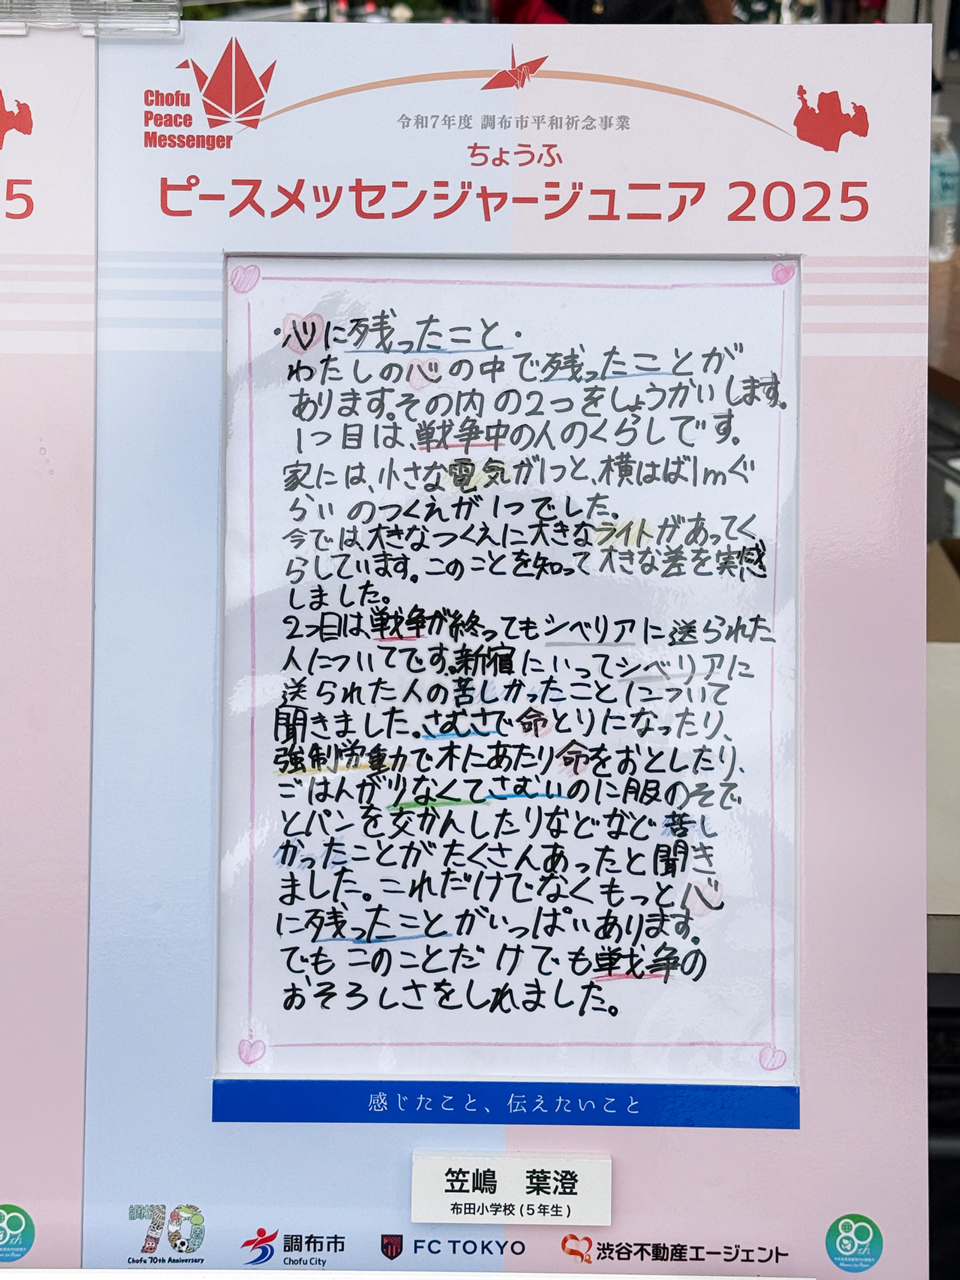 Chofu
Peace
Messenger
令和7年度 調布市平和祈念事業
ちょうふ
ピースメッセンジャージュニア 2025
5
・心に残ったこと・
わたしの心の中で残ったことが
あります。その内の2つをしょうかいします。
1つ目は、戦争中の人のくらしです。
家には、小さな電気が1つと、横はば1mぐ
らいのつくえが1つでした。
今では大きなつくえに大きなライトがあってく
らしています。このことを知って大きな差を実感
しました。
2つ目は、戦争が終ってもシベリアに送られた
人についてです。新宿にいってシベリアに
送られた人の苦しかったことについて
聞きました。さむさで命とりになったり、
強制労動で木にあたり命をおとしたり、
ごはんが少なくてさむいのに服のそで
とパンを交かんしたりなどなど苦し
かったことがたくさんあったと聞き
ました。これだけでなくもっと心
に残ったことがいっぱいあります。
でもこのことだけでも戦争の
おそろしさをしれました。
感じたこと、伝えたいこと
笠嶋 葉澄
布田小学校(5年生)
調布市
70
周年
Chofu 70th Anniversary
調布市
Chofu City
FC TOKYO
渋谷不動産エージェント
80th